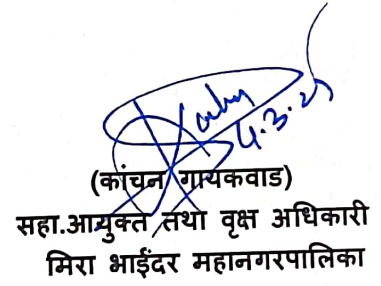 4.3.25
(कांचन गायकवाड)
सहा.आयुक्त तथा वृक्ष अधिकारी
मिरा भाईंदर महानगरपालिका